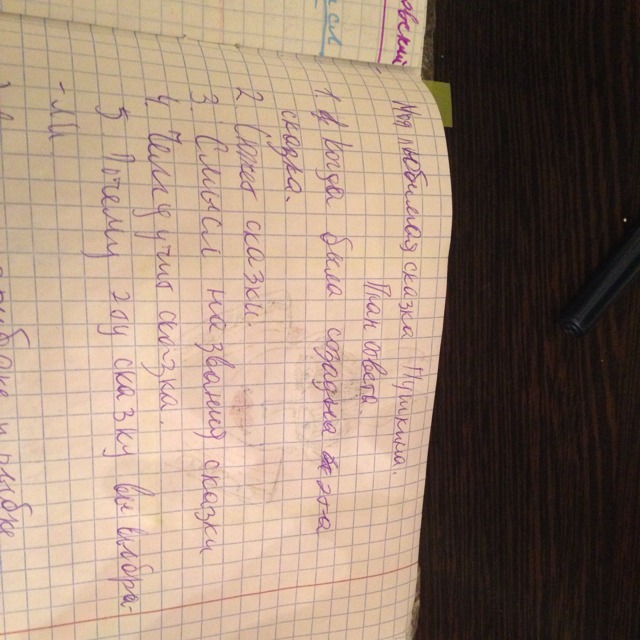 Моя любимая сказка Пушкина.
План ответа.
1 Когда была создана эта
сказка.
2. Сюжет сказки.
3 Смысл названия сказки
4 Чему учит сказка.
5 Почему эту сказку вы выбра-
-ли
рыбаке и рыбке